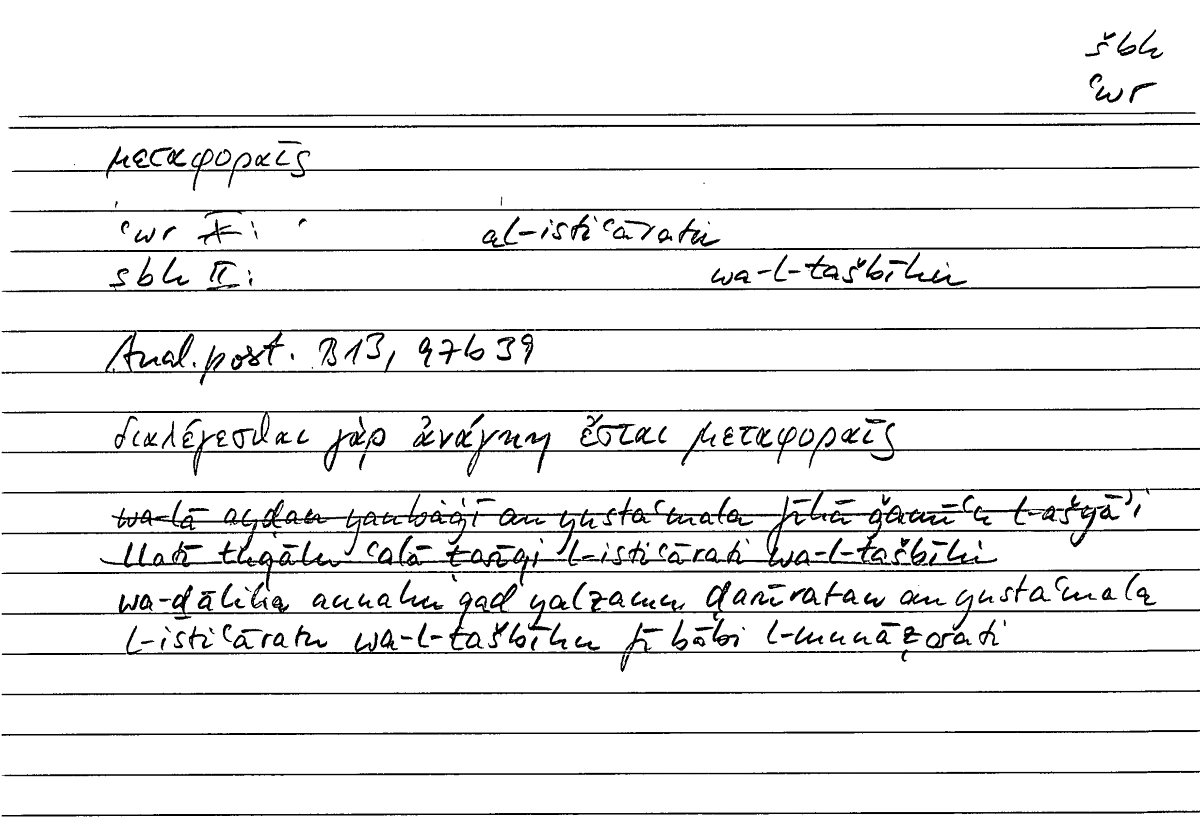 šbh
ʿwr
μεταφοραῖς
ʿwr X: al-istiʿāratu
šbh II: wa-l-tašbīhu
Anal. post. B13, 97b39
διαλέγεσθαι γὰρ ἀνάγκη ἔσται μεταφοραῖς
wa-lā ayḍan yanbaġī an yustaʿmala fīhā ǧamīʿu l-ašyāʾi
llatī tuqālu ʿalā ṭarīqi l-istiʿārati wa-l-tašbīhi
wa-ḏālika annahu qad yalzamu ḍarūratan an yustaʿmala
l-istiʿāratu wa-l-tašbīhu fī bābi l-munāẓarati